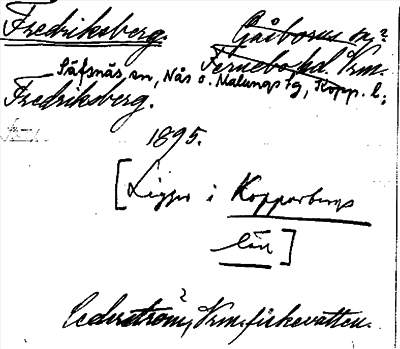 Fredriksberg. Gåsborns sn?
Färnebo hd. Vrm.
Säfsnäs sn, Nås o. Malungs tg, Kopp. l;
Fredriksberg.
1895.
[Ligger i Kopparbergs
län]
Cederström, Vrm. fiskevatten.